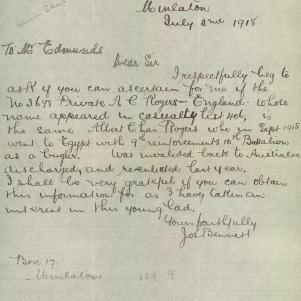 Minlaton
July 2nd 1918
To Mr Edmunds
Dear Sir
I respectfully beg to
ask if you can ascertain for me if the
No 3698 Private A C Rogers - England - whose
name appeared in casualty list 406, is
the same Albert Chas Rogers who in Sept 1915
went to Egypt with 9th reinforcements 10th Battalion
as a bugler. Was invalided back to Australia
discharged, and reenlisted last year.
I shall be very grateful if you can obtain
this information for as I have taken an
interest in this young lad.
Yours faithfully
Joe Bennett
Box 17.
Minlaton